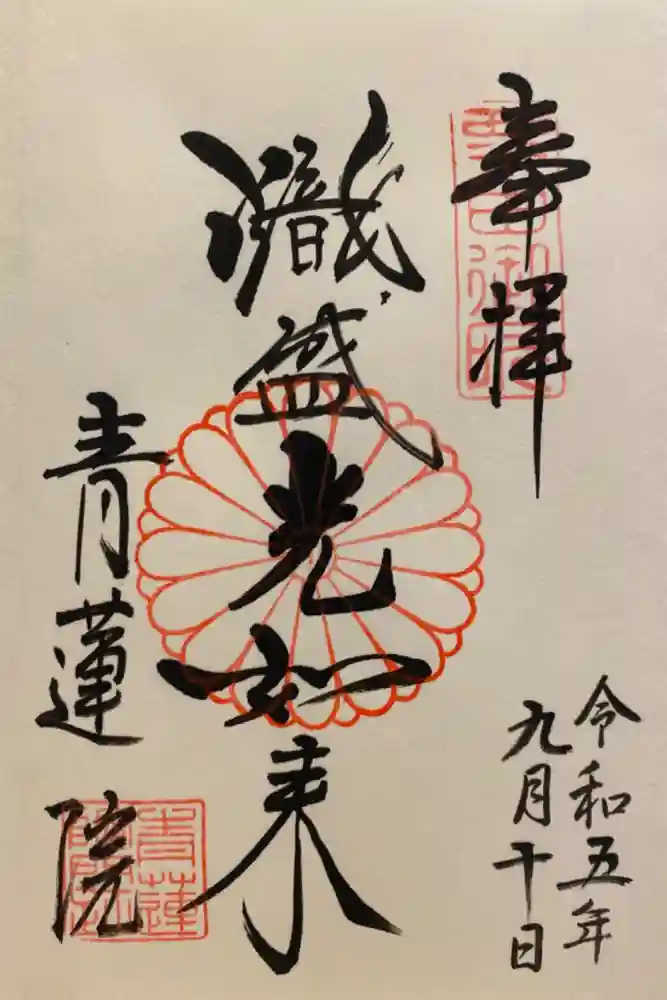 奉拝
令和五年
九月十日
熾盛光如来
青蓮院
粟田御所
青蓮